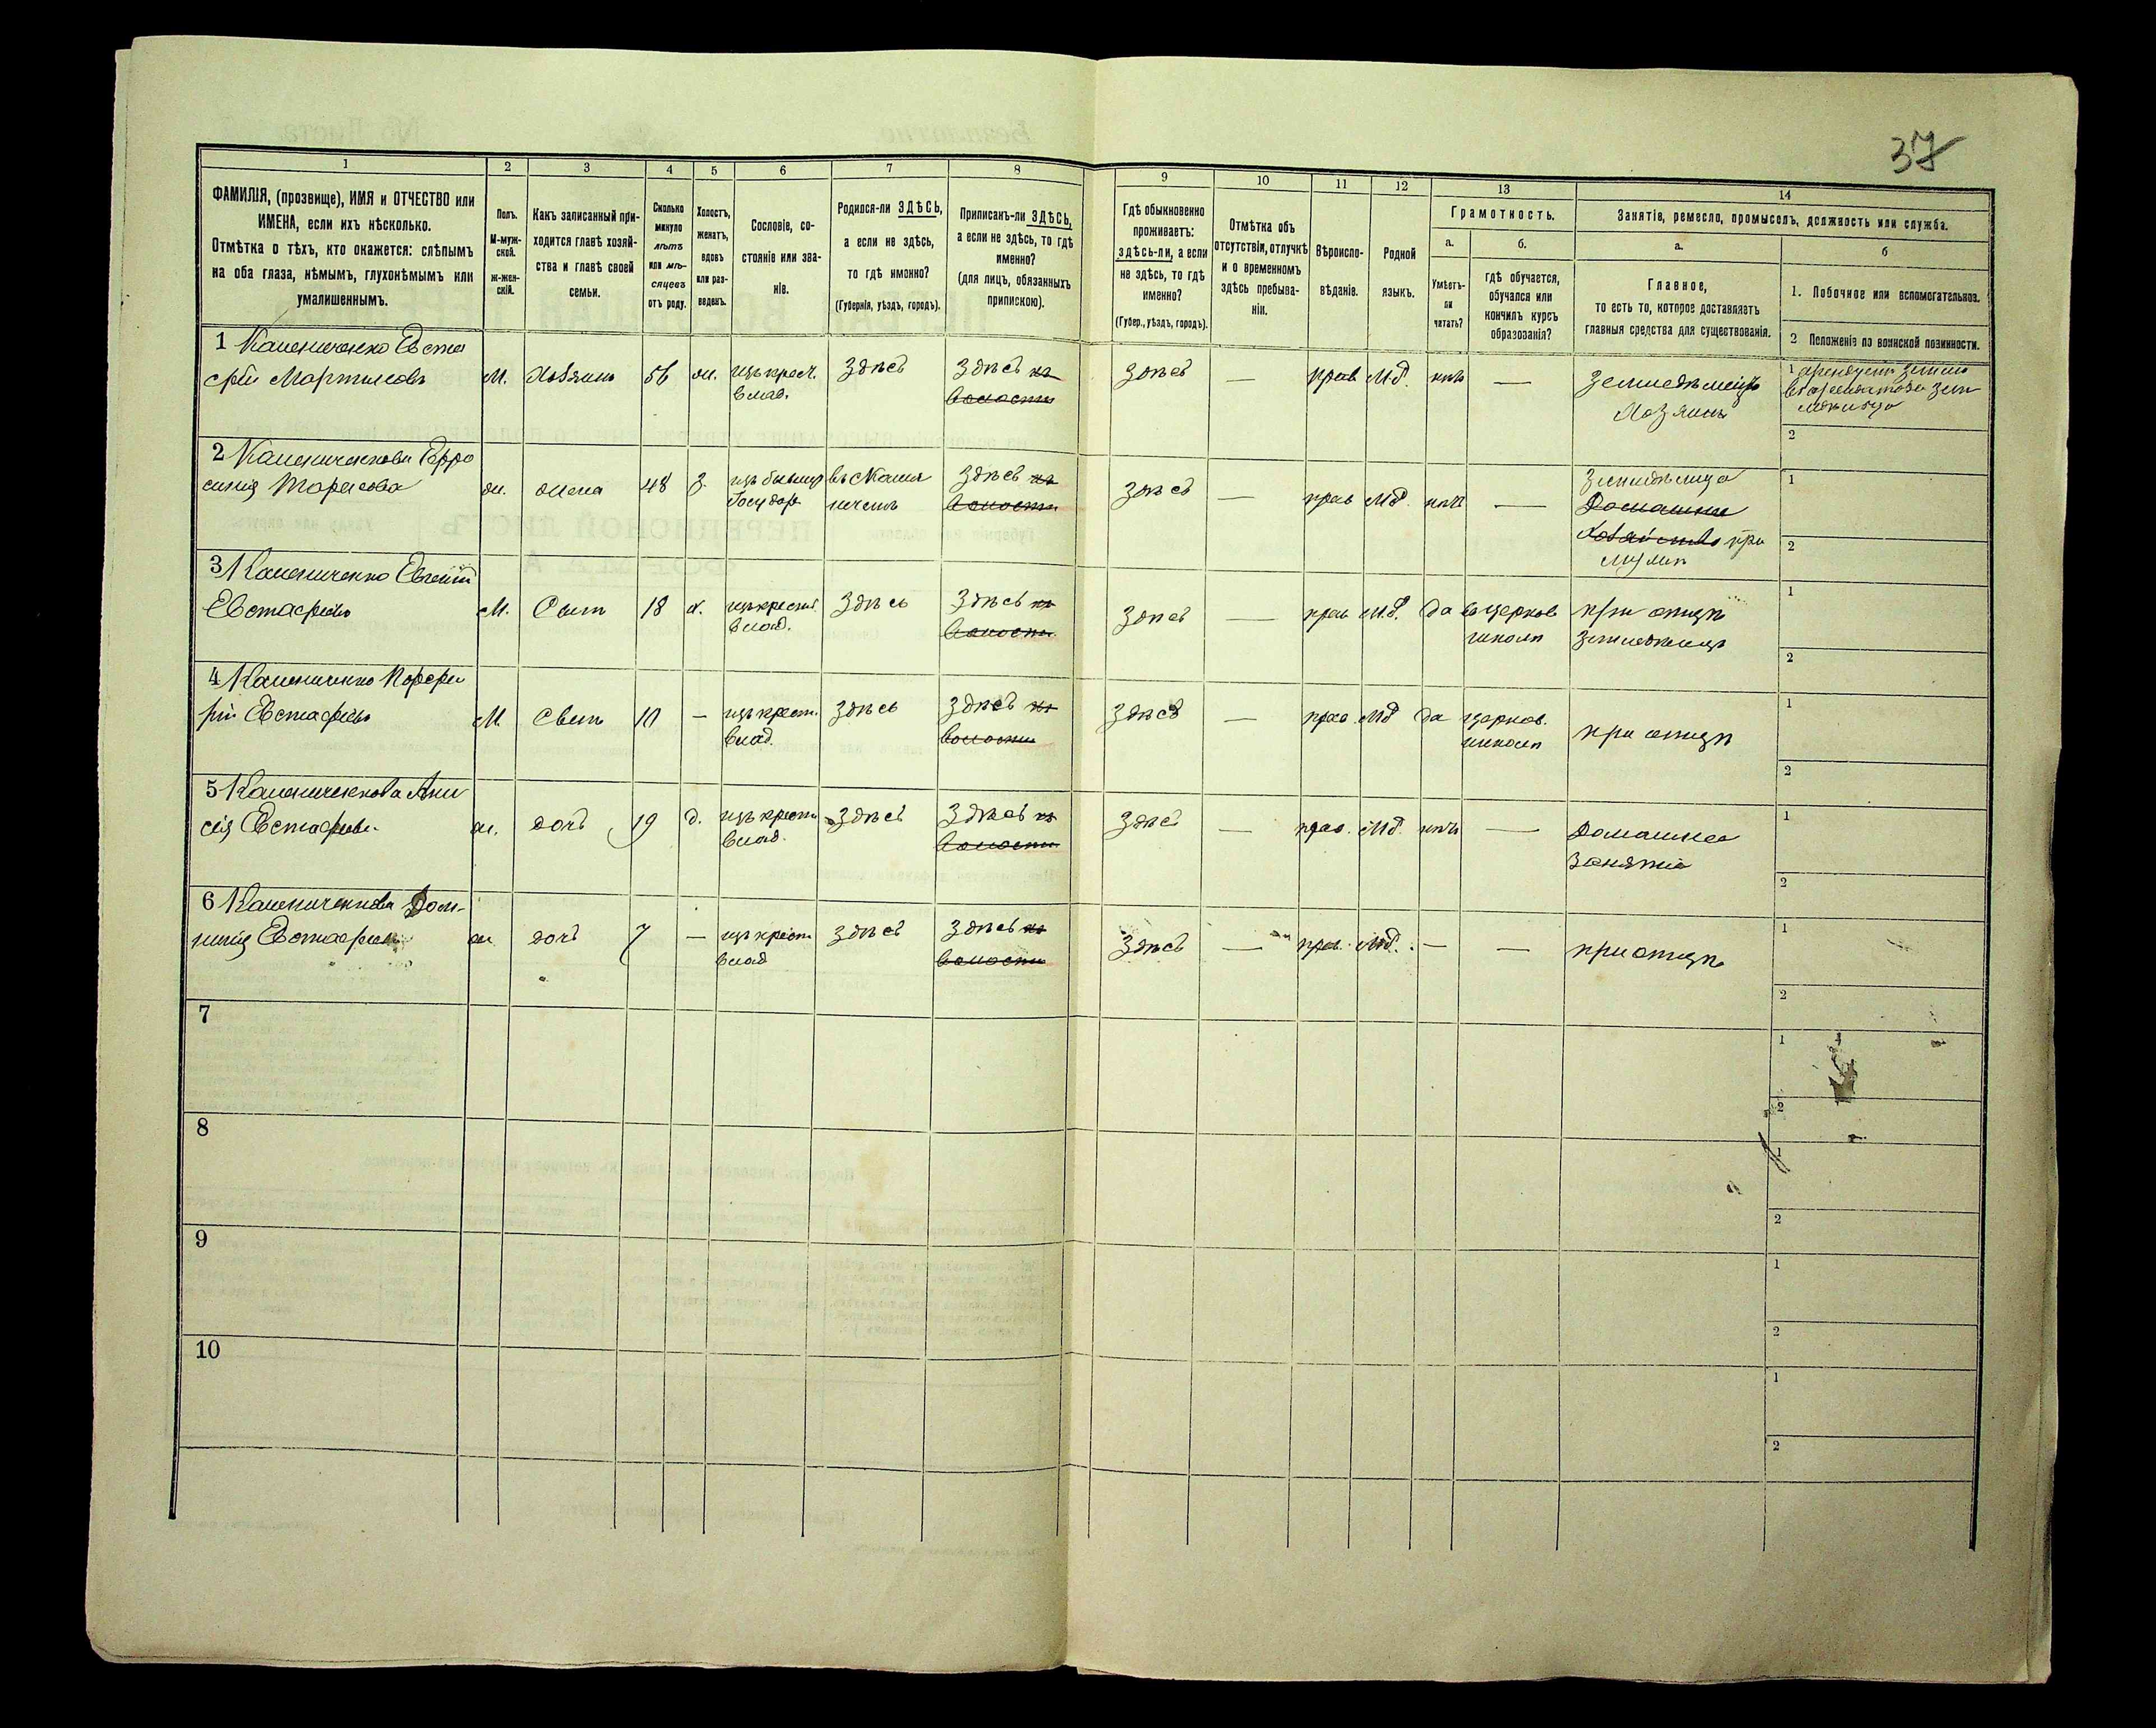 37
1 2 3 4 5 6 7 8 9 10 11 12 13 14
ФАМИЛІЯ, (прозвище), ИМЯ и ОТЧЕСТВО или
ИМЕНА, если ихъ нѣсколько.
Отмѣтка о тѣхъ, кто окажется: слѣпымъ
на оба глаза, нѣмымъ, глухонѣмымъ или
умалишеннымъ.
Полъ.
М-муж-
ской.
ж-жен-
скій.
Какъ записанный при-
ходится главѣ хозяй-
ства и главѣ своей
семьи.
Сколько
минуло
лѣтъ
или мѣ-
сяцевъ
отъ роду.
Холостъ,
женатъ,
вдовъ
или раз-
веденъ.
Сословіе, со-
стояніе или зва-
ніе.
Родился-ли ЗДѢСЬ,
а если не здѣсь,
то гдѣ именно?
(Губернія, уѣздъ, городъ).
Приписанъ-ли ЗДѢСЬ,
а если не здѣсь, то гдѣ
именно?
(для лицъ, обязанныхъ
припискою).
Гдѣ обыкновенно
проживаетъ:
здѣсь-ли, а если
не здѣсь, то гдѣ
именно?
(Губер., уѣздъ, городъ).
Отмѣтка объ
отсутствіи, отлучкѣ
и о временномъ
здѣсь пребыва-
ніи.
Вѣроиспо-
вѣданіе.
Родной
языкъ.
Грамотность.
а.
Умѣетъ-
ли
читать?
б.
гдѣ обучается,
обучался или
кончилъ курсъ
образованія?
Занятіе, ремесло, промыселъ, должность или служба.
а.
Главное,
то есть то, которое доставляетъ
главныя средства для существованія.
б
1. Побочное или вспомогательное.
2 Положеніе по воинской повинности.
1 Камениченко Евста
фій Мартиновъ
М. Хозяинъ 56 ж. изъ крест.
влад.
здѣсь
здѣсь
волости
здѣсь — прав М.д. нѣтъ —
земледѣлецъ
хозяинъ
1
2
2 Камениченкова Ефро
синія Тарасова
ж. жена 48 з. изъ бывш
Государ
здѣсь
волости
здѣсь — прав М.д. нѣтъ —
Домашнее
хозяйство при
мужѣ
1
2
3 Камениченко Евгеній
Евстафіевъ
М. Сынъ 18 х. изъ крест.
влад.
здѣсь
здѣсь
волости
здѣсь — прав М.д. да въ церков
школѣ
при отцѣ
земледѣлецъ
1
2
4 Камениченко Порфи
рій Евстафіевъ
М. Сынъ 10 — изъ крест.
влад.
здѣсь
здѣсь
волости
здѣсь — прав. М.д да церков.
школѣ
при отцѣ
1
2
5 Камениченкова Ани
сія Евстафіева
ж. дочь 19 д. изъ крест
влад.
здѣсь
здѣсь
волости
здѣсь — прав. М.д. нѣтъ —
Домашнее
занятіе
1
2
6 Камениченкова Дом-
никія Евстафіева
ж дочь 7 — изъ крест
влад
здѣсь
здѣсь
волости
здѣсь — прав. М.д. — —
при отцѣ
1
2
7
1
2
8
1
2
9
1
2
10
1
2